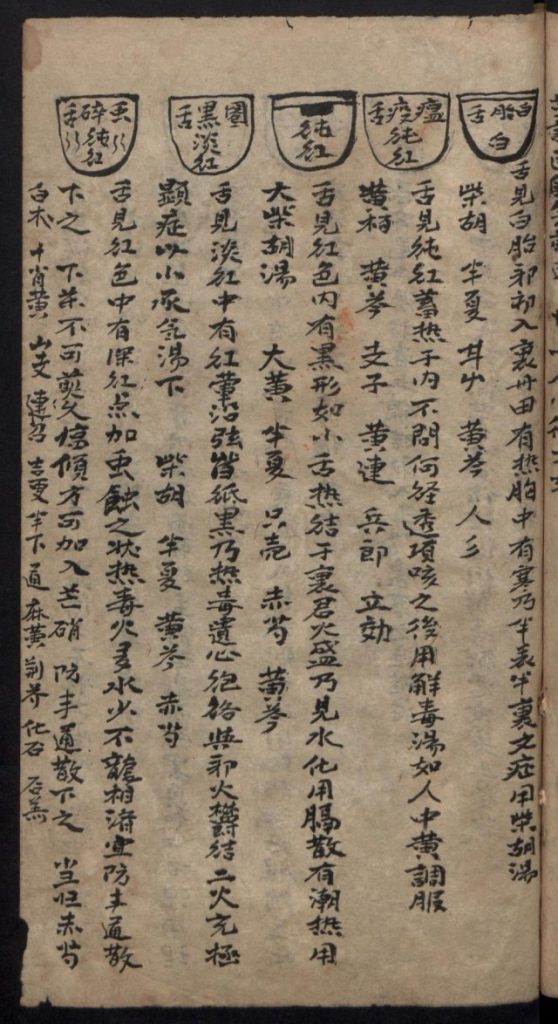 白胎舌
白
舌見白胎邪初入裏丹田有热胎中有寒乃半表半裏之症用柴胡湯
柴胡 半夏 甘 黄芩 人
瘟疫舌
純紅
舌見純紅蓄热于内不問何経透項咳之後用解毒湯如人中黄調服
黄柏 黄芩 支子 黄連 兵郎 立効
純紅
舌見紅色内有黑形如小舌热結于裏君火盛乃見水化用膈散有潮热用
大柴胡湯 大黄 半夏 只壳 赤芍 黄芩
圈黑舌
淡紅
舌見淡紅中有紅暈沿弦皆紙黑乃热毒遺心胞絡與邪火欝結二火亢極
顕症以小承気湯下 柴胡 半夏 黄芩 赤芍
虫碎舌
純紅
舌見紅色中有深紅点加虫蝕之状热毒火多水少不能相济宜防丰通散
下之 下茶不可停傾方可加入芒硝 防丰通散下之 当归赤芍
白术 黄 山支 連召 吉更 半下 通 麻黄 荆芥 化石 石羔